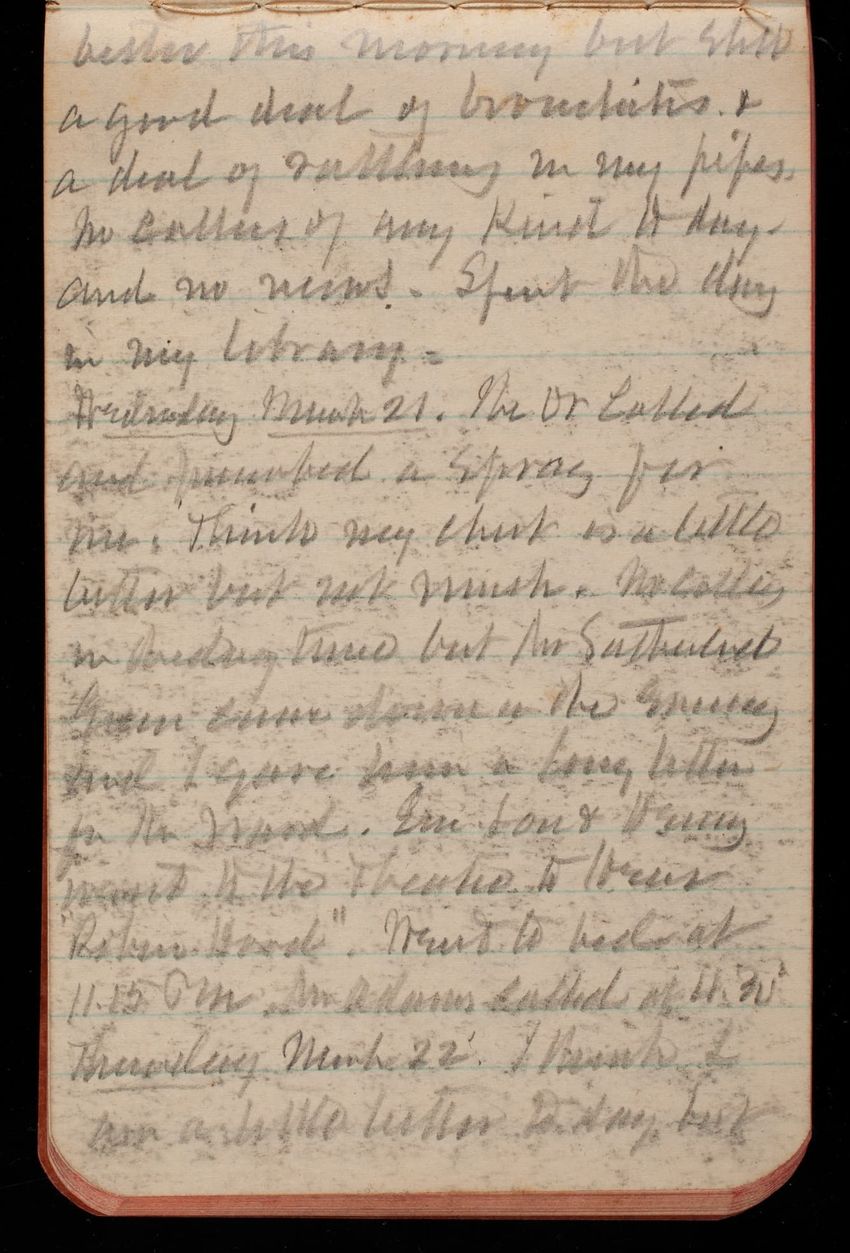 better this morning but still
a good deal of bronchitis &
a deal of rattling in my pipes.
No callers of any kind to day.
and no news. Spent the day
in my library.
Wednesday March 21. The Dr Called
and a spray for
me. I think my chest is a little
better but not much. No callers
in day time but Mr
Green came down in the Evening
and I gave him a long letter
for Mr. . &
went to the Theatre to hear
"Robin Hood". Went to bed at
11.15 PM. Mr Adams called at
Thursday March 22. I think I
am a little better to day, but